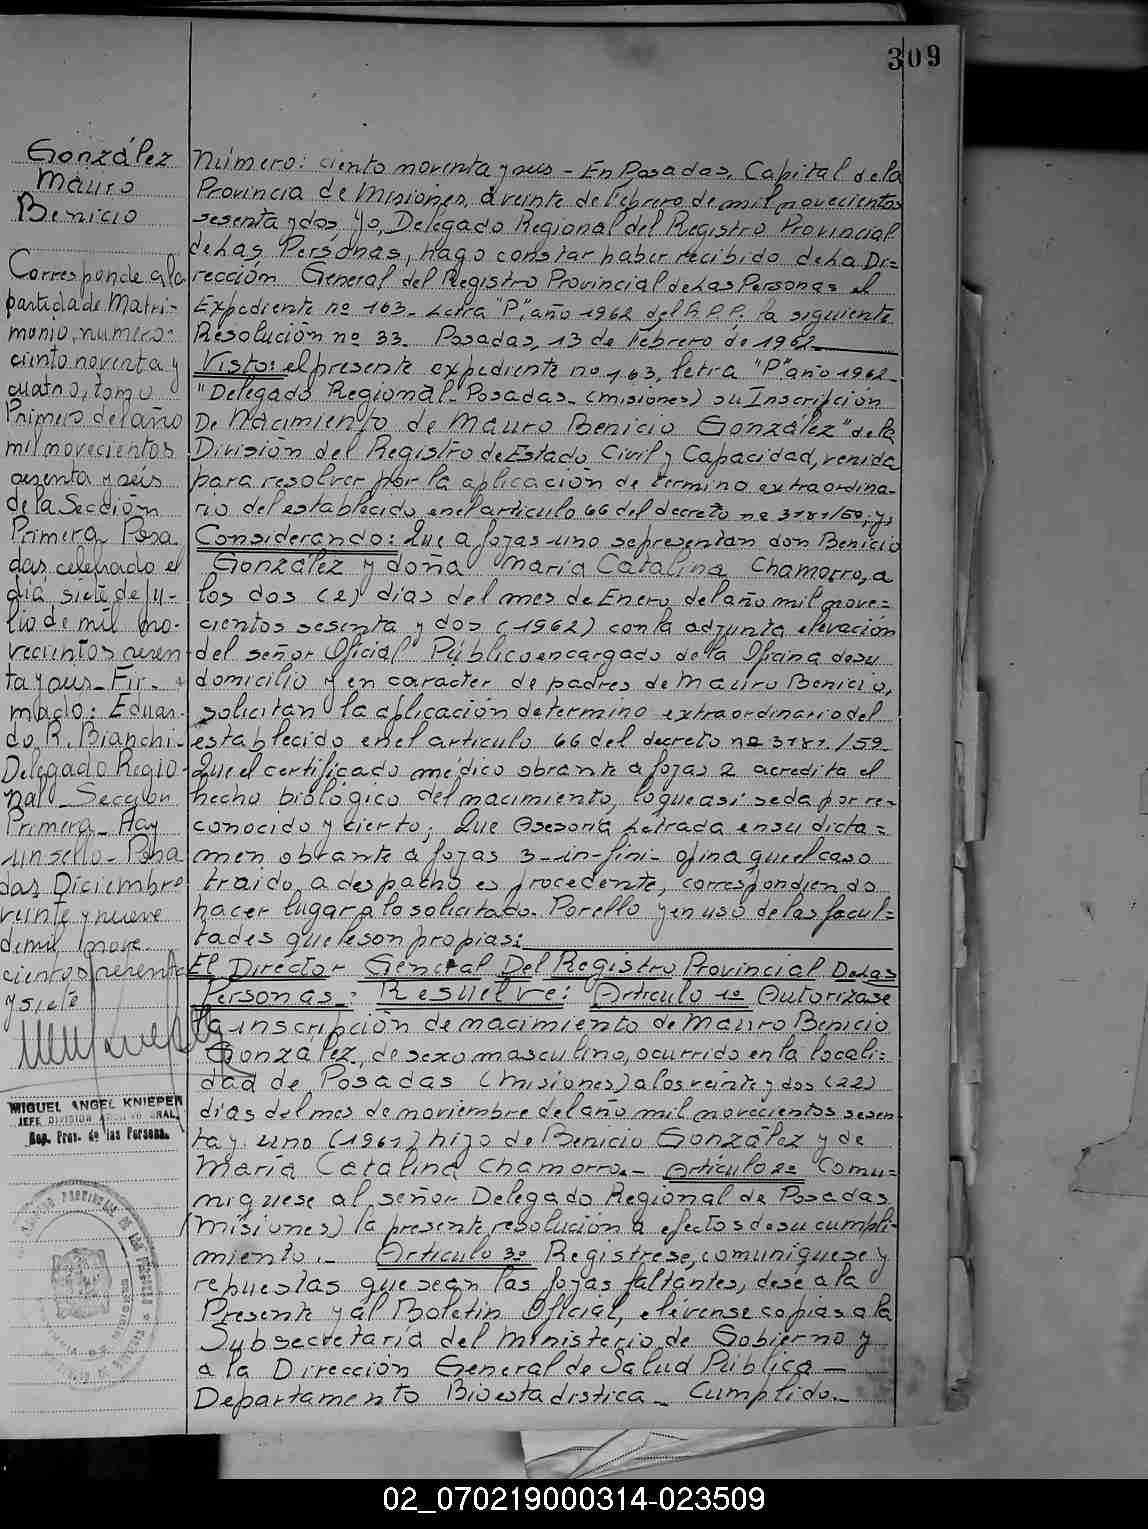 309
González
Mauro
Benicio
Corresponde a la
partida de Matri-
monio, numero:
ciento noventa y
cuatro, tomo
Primero del año
mil novecientos
sesenta y seis
de la Sección
Primera Posa
das, celebrado el
día siete de Ju-
lio de mil no-
vecientos sesen
ta y seis - Fir-
mado: Eduar-
do R. Bianchi-
Delegado Regio-
nal - Sección
Primera - Hay
un sello - Posa
das Diciembre
veinte y nueve
de mil nove-
cientos setenta
y siete
MIGUEL ANGEL KNIEPER
JEFE DIVISION ARCHIVO GRAL.
Reg. Prov. de las Personas.
Número: ciento noventa y seis - En Posadas, Capital de la
Provincia de Misiones, a veinte de Febrero de mil novecientos
sesenta y dos Yo, Delegado Regional del Registro Provincial
de Las Personas, hago constar haber recibido de La Di=
rección General del Registro Provincial de Las Personas el
Expediente nº 163 - Letra "P", año 1962 del R.P.P. la siguiente
Resolución nº 33. Posadas, 13 de Febrero de 1962
Visto: el presente expediente nº 163, letra "P" año 1962-
"Delegado Regional - Posadas - (Misiones) su Inscripcion
De Nacimiento de Mauro Benicio González" de la
División del Registro de Estado Civil y Capacidad, venida
para resolver por la aplicación de termino extraordina-
rio del establecido en el articulo 66 del decreto nº 3181/59; y,
Considerando: Que a fojas uno se presentan don Benicio
González y doña María Catalina Chamorro, a
los dos (2) días del mes de Enero del año mil nove=
cientos sesenta y dos (1962) con la adjunta elevación
del señor Oficial Público encargado de la Oficina de su
domicilio y en caracter de padres de Mauro Benicio,
solicitan la aplicación de termino extraordinario del
establecido en el articulo 66 del decreto nº 3181./59.
Que el certificado médico obrante a fojas 2 acredita el
hecho biológico del nacimiento, lo que así se da por re-
conocido y cierto; Que Asesoría Letrada en su dicta=
men obrante a fojas 3 -in-fini- opina que el caso
traido a despacho es procedente, correspondiendo
hacer lugar a lo solicitado. Por ello y en uso de las facul-
tades que le son propias:
El Director General Del Registro Provincial De Las
Personas: Resuelve: Articulo 1º Autorizase
la inscripción de nacimiento de Mauro Benicio
González, de sexo masculino, ocurrido en la locali=
dad de Posadas (Misiones) a los veinte y dos (22)
días del mes de noviembre del año mil novecientos sesen
ta y uno (1961) hijo de Benicio González y de
María Catalina Chamorro.- Artículo 2º Comu=
niquese al señor Delegado Regional de Posadas
(Misiones) la presente resolución a efectos de su cumpli-
miento.- Artículo 3º Registrese, comuniquese y
repuestas que sean las fojas faltantes, dese a la
Presente y al Boletin Oficial, elévense copias a la
Subsecretaría del Ministerio de Gobierno y
a la Dirección General de Salud Pública -
Departamento Bioestadistica - Cumplido.-
02_070219000314-023509